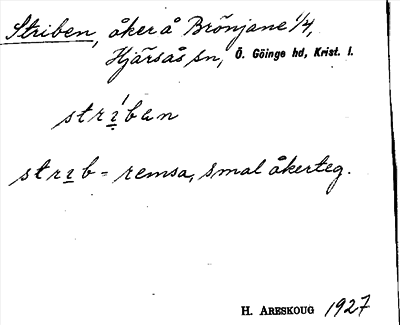 Striben, åker å Brönjane 1/4,
Hjärsås sn, Ö. Göinge hd, Krist. l.
strı̣́bɛn
strı̣b = remsa, smal åkerteg.
H. Areskoug 1927